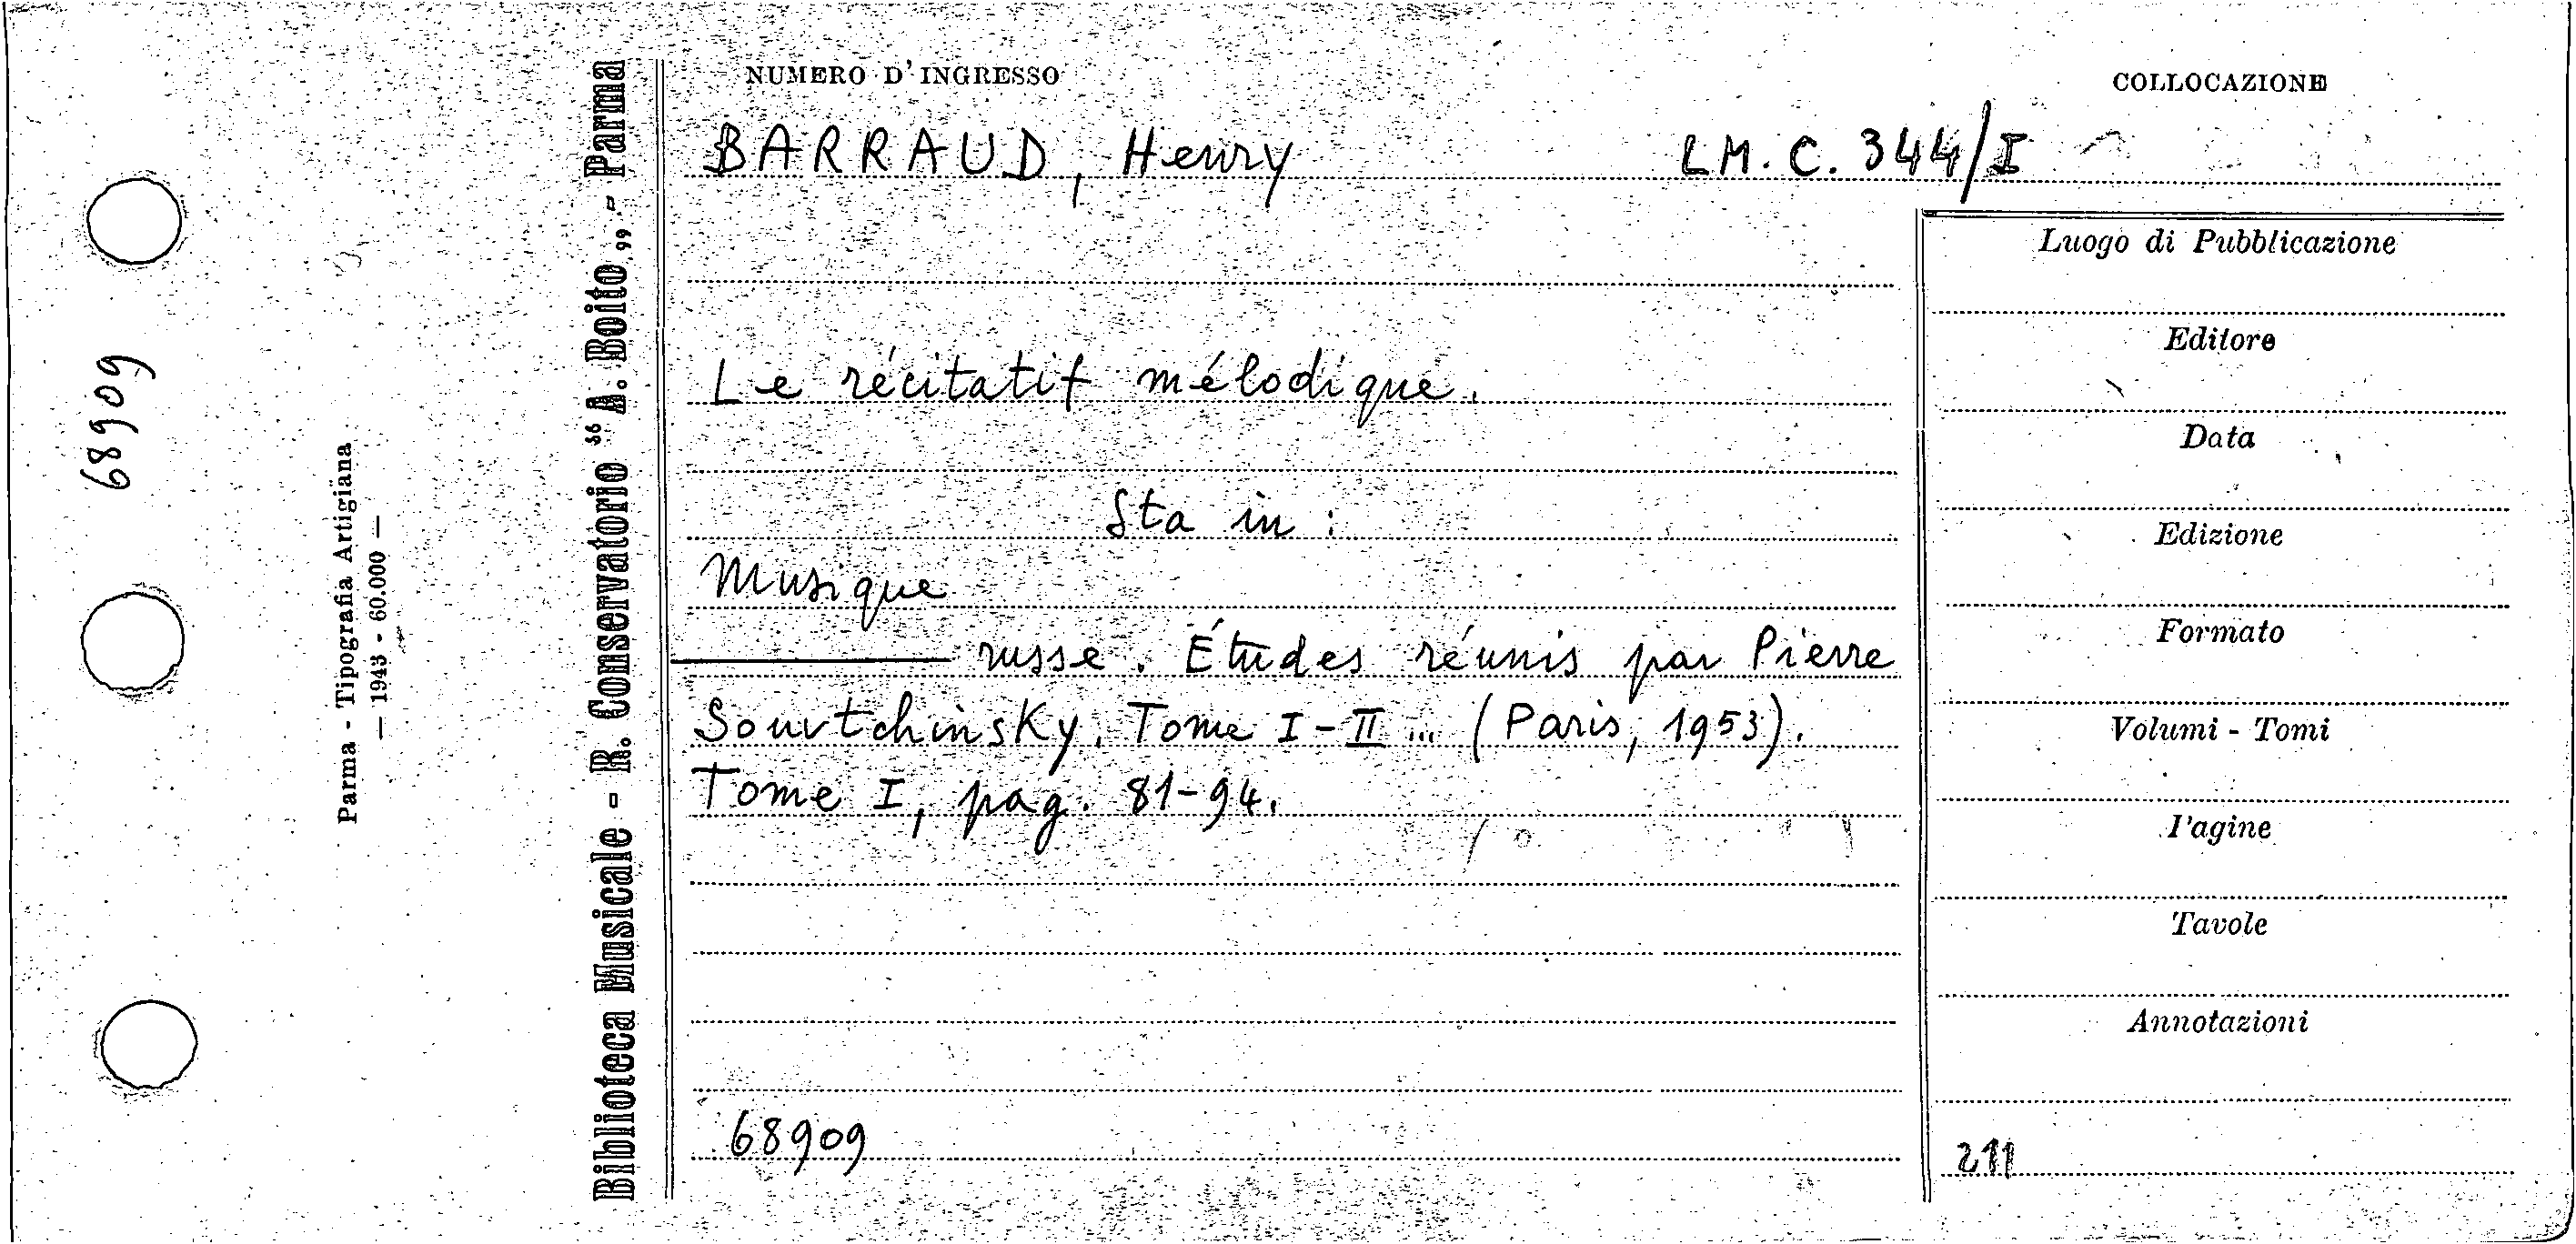 NUMERO D'INGRESSO
COLLOCAZIONE
BARRAUD, Henry
LM. C. 344/I
Le récitatif mélodique.
Sta in:
Musique
russe. Études réunis par Pierre
Souvtchinsky. Tome I-II... (Paris, 1953).
Tome I, pag. 81-94.
68909
Luogo di Pubblicazione
Editore
Data
Edizione
Formato
Volumi - Tomi
Pagine
Tavole
Annotazioni
211
Biblioteca Musicale - R. Conservatorio “A. Boito„ - Parma
Parma - Tipografia Artigiana
— 1943 - 60.000 —
68909